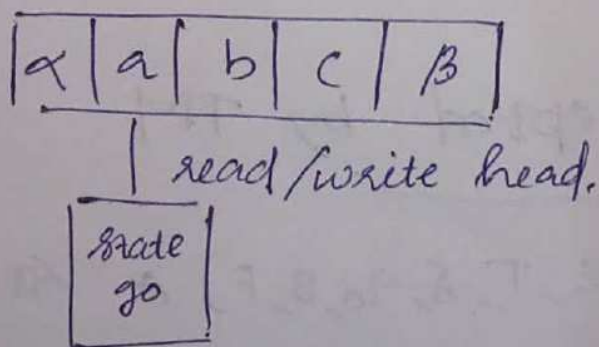 α a b c β
read/write head.
state
q0